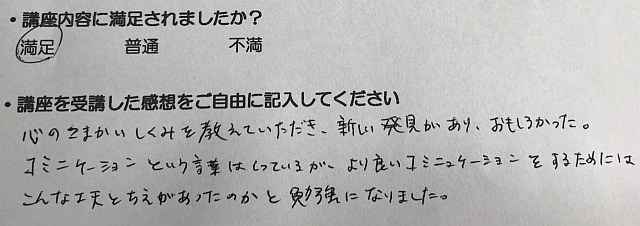 ・講座内容に満足されましたか？
満足 普通 不満
・講座を受講した感想をご自由に記入してください
心のこまかいしくみを教えていただき、新しい発見があり、おもしろかった。
コミニケーションという言葉はしっているが、より良いコミニュケーションをするためには
こんな工夫とちえがあったのかと勉強になりました。